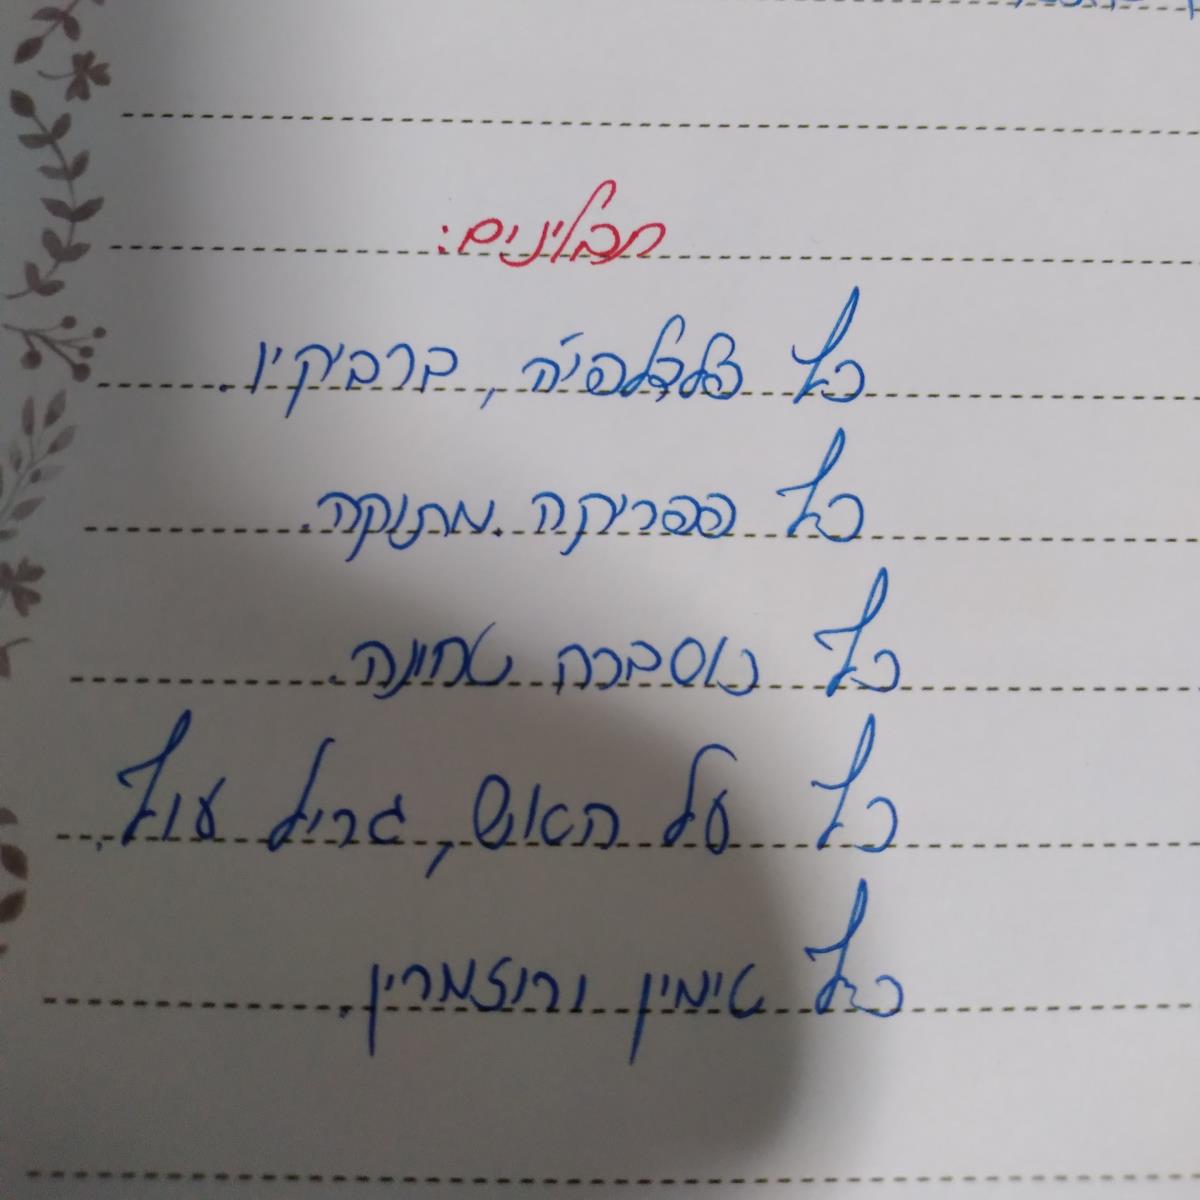 תבלינים:
כף צ'לצ'לפיה, ברביקיו.
כף פפריקה מתוקה.
כף כוסברה טחונה.
כף על האש, גריל עוף.
כף טימין ורוזמרין.